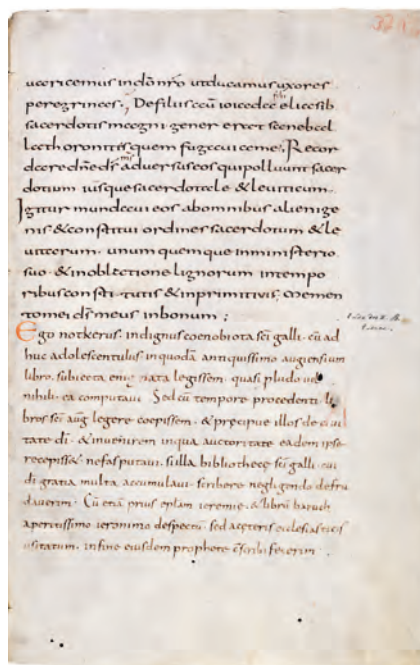 uaricemus in dõ nr̃o ut ducamus uxores
peregrinas ; De filiis aũ ioiadae filii eliasib
sacerdotis magni · gener erat sanabal
lath oronites quem fugaui a me ; Recor
dare dñe ds̃ mis aduersus eos qui polluunt sacer
dotium iusque sacerdotale & leuiticum ·
Igitur mundaui eos ab omnibus alienige
nis & constitui ordines sacerdotum & le
uitarum · unum quemque in ministerio
suo · & in oblatione lignorum in tempo
ribus constitutis & in primitiuis · memen
to mei ds̃ meus in bonum ;
Ego notkerus · indignus coenobiota sc̃i galli · cũ ad
huc adolescentulus in quodã antiquissimo augiensium
libro · subiecta enigmata legissem · quasi p ludo uel
nihili · ea computaui · Sed cũ tempore procedenti li
bros sc̃i aug̃ legere coepissem · & precipue illos de ciui
tate di · & inuenirem in qua auctoritate eadem ipse
recepiss& · nefas putaui · si illa bibliothecę sc̃i galli · cui
di gratia multa accumulaui · scribere neglegendo defrau
dauerim · Cũ etiã prius eplam ieremie · & librũ baruch
apertissimo ieronimo despectũ · sed a cęteris ecclesiasticis
usitatum · in fine eiusdem prophetę c̃scribi fecerim ·